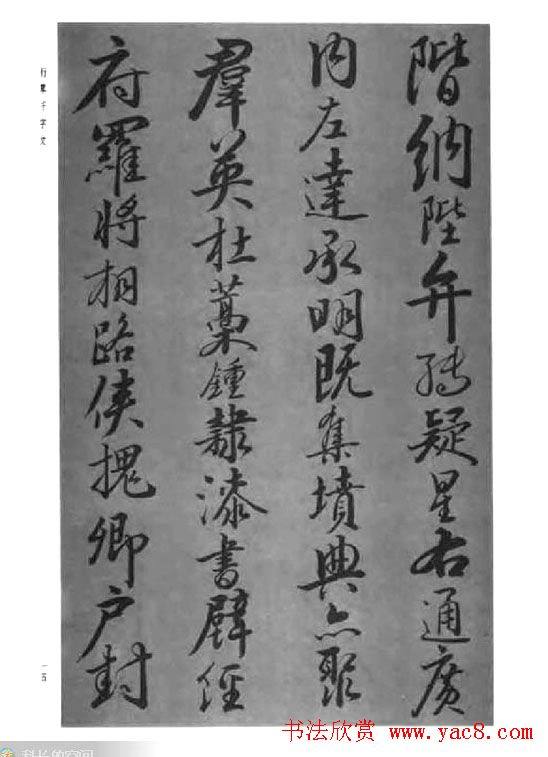 階納陛弁轉疑星右通廣
内左達承明既集墳典亦聚
羣英杜藁鍾隸漆書壁經
府羅將相路俠槐卿户封
行書千字文
一五
书法欣赏 www.yac8.com
科长的空间